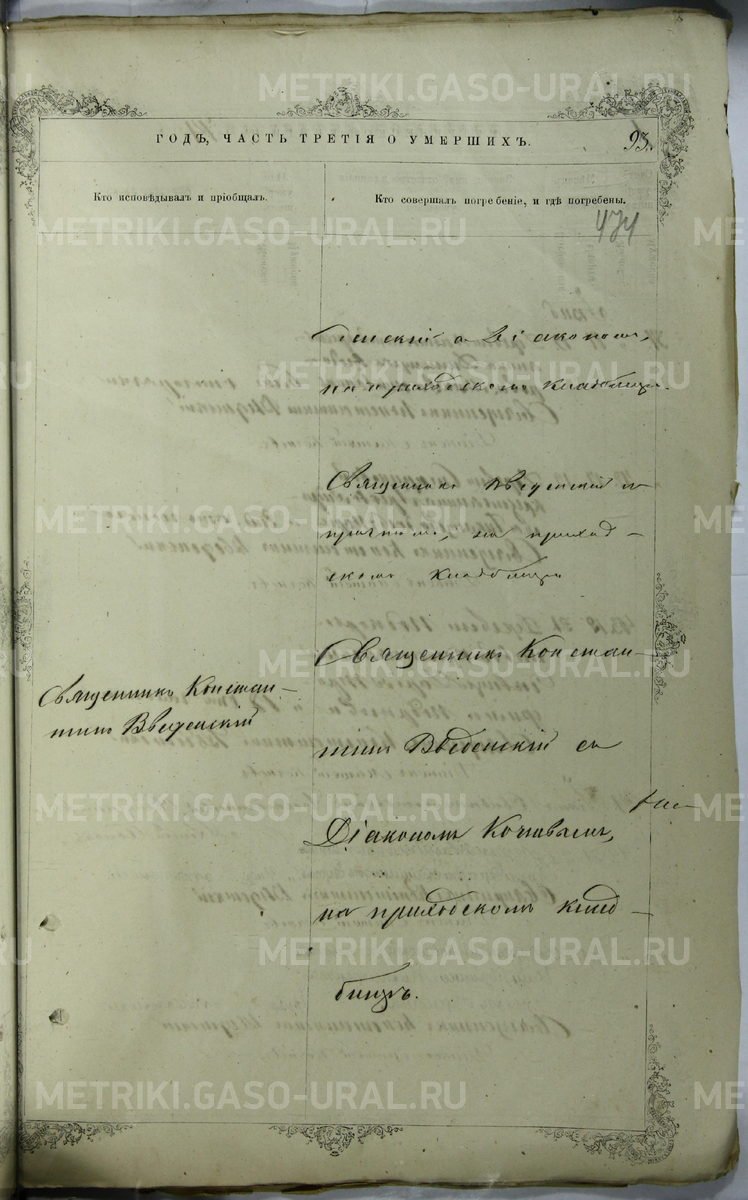 METRIKI.GASO-URAL.RU
ГОДЪ, ЧАСТЬ ТРЕТІЯ О УМЕРШИХЪ.
93.
Кто исповѣдывалъ и пріобщалъ.
Кто совершалъ погребеніе, и гдѣ погребены.
474
денскій съ Діакономъ,
на приходскомъ кладбищѣ.
Священникъ Введенскій съ
причтомъ, на приход-
скомъ кладбищѣ
Священникъ Констан-
тинъ Введенскій
Священникъ Констан-
тинъ Введенскій съ
Діакономъ
на приходскомъ клад-
бищѣ.